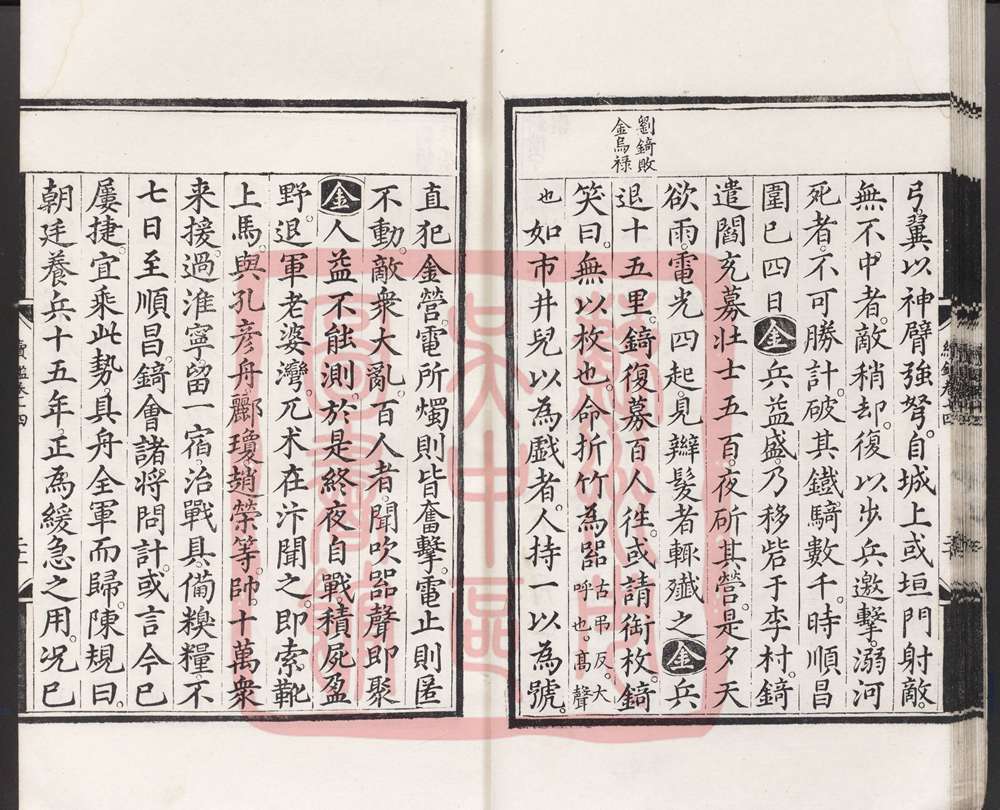 劉錡敗
金烏祿
弓翼以神臂强弩。自城上或垣門射敵。
無不中者。敵稍却。復以步兵邀擊。溺河
死者。不可勝計。破其鐵騎數千。時順昌
圍已四日。金兵益盛。乃移砦于李村。錡
遣閻充募壯士五百。夜斫其營。是夕天
欲雨。電光四起。見辮髮者輒殲之。金兵
退十五里。錡復募百人往。或請銜枚。錡
笑曰。無以枚也。命折竹為嘂古弔反。大呼也。高聲
也如市井兒以為戲者。人持一以為號。
直犯金營。電所燭則皆奮擊。電止則匿
不動。敵衆大亂。百人者。聞吹嘂聲即聚
金人益不能測。於是終夜自戰。積屍盈
野。退軍老婆灣。兀术在汴聞之。即索靴
上馬。與孔彥舟酈瓊趙榮等。帥十萬衆
来援。過淮寧留一宿。治戰具。備糗糧。不
七日至順昌。錡會諸將問計。或言今已
屢捷。宜乘此勢具舟全軍而歸。陳規曰。
朝廷養兵十五年。正為緩急之用。况已